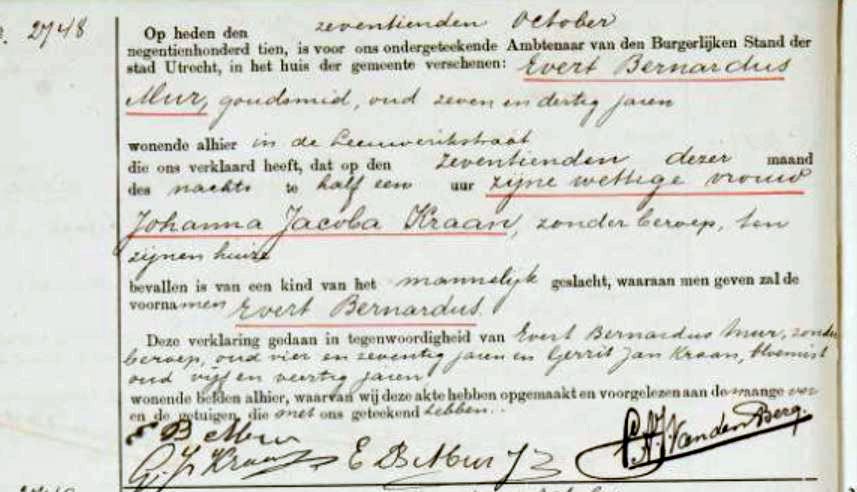 2748
Op heden den zeventienden October
negentienhonderd tien, is voor ons ondergeteekende Ambtenaar van den Burgerlijken Stand der
stad Utrecht, in het huis der gemeente verschenen: Evert Bernardus
Mur, goudsmid, oud zeven en dertig jaren
wonende alhier in de Leeuwerikstraat
die ons verklaard heeft, dat op den zeventienden dezer maand
des nachts te half een uur zijne wettige vrouw
Johanna Jacoba Kraan, zonder beroep, ten
zijnen huize
bevallen is van een kind van het mannelijk geslacht, waaraan men geven zal de
voornamen Evert Bernardus.
Deze verklaring gedaan in tegenwoordigheid van Evert Bernardus Mur, zonder
beroep, oud vier en zeventig jaren en Gerrit Jan Kraan, bloemist
oud vijf en veertig jaren,
wonende beiden alhier, waarvan wij deze akte hebben opgemaakt en voorgelezen aan de
en de getuigen, die met ons geteekend hebben.
B Mur
G. J. Kraan E B Mur Jz van den Berg.